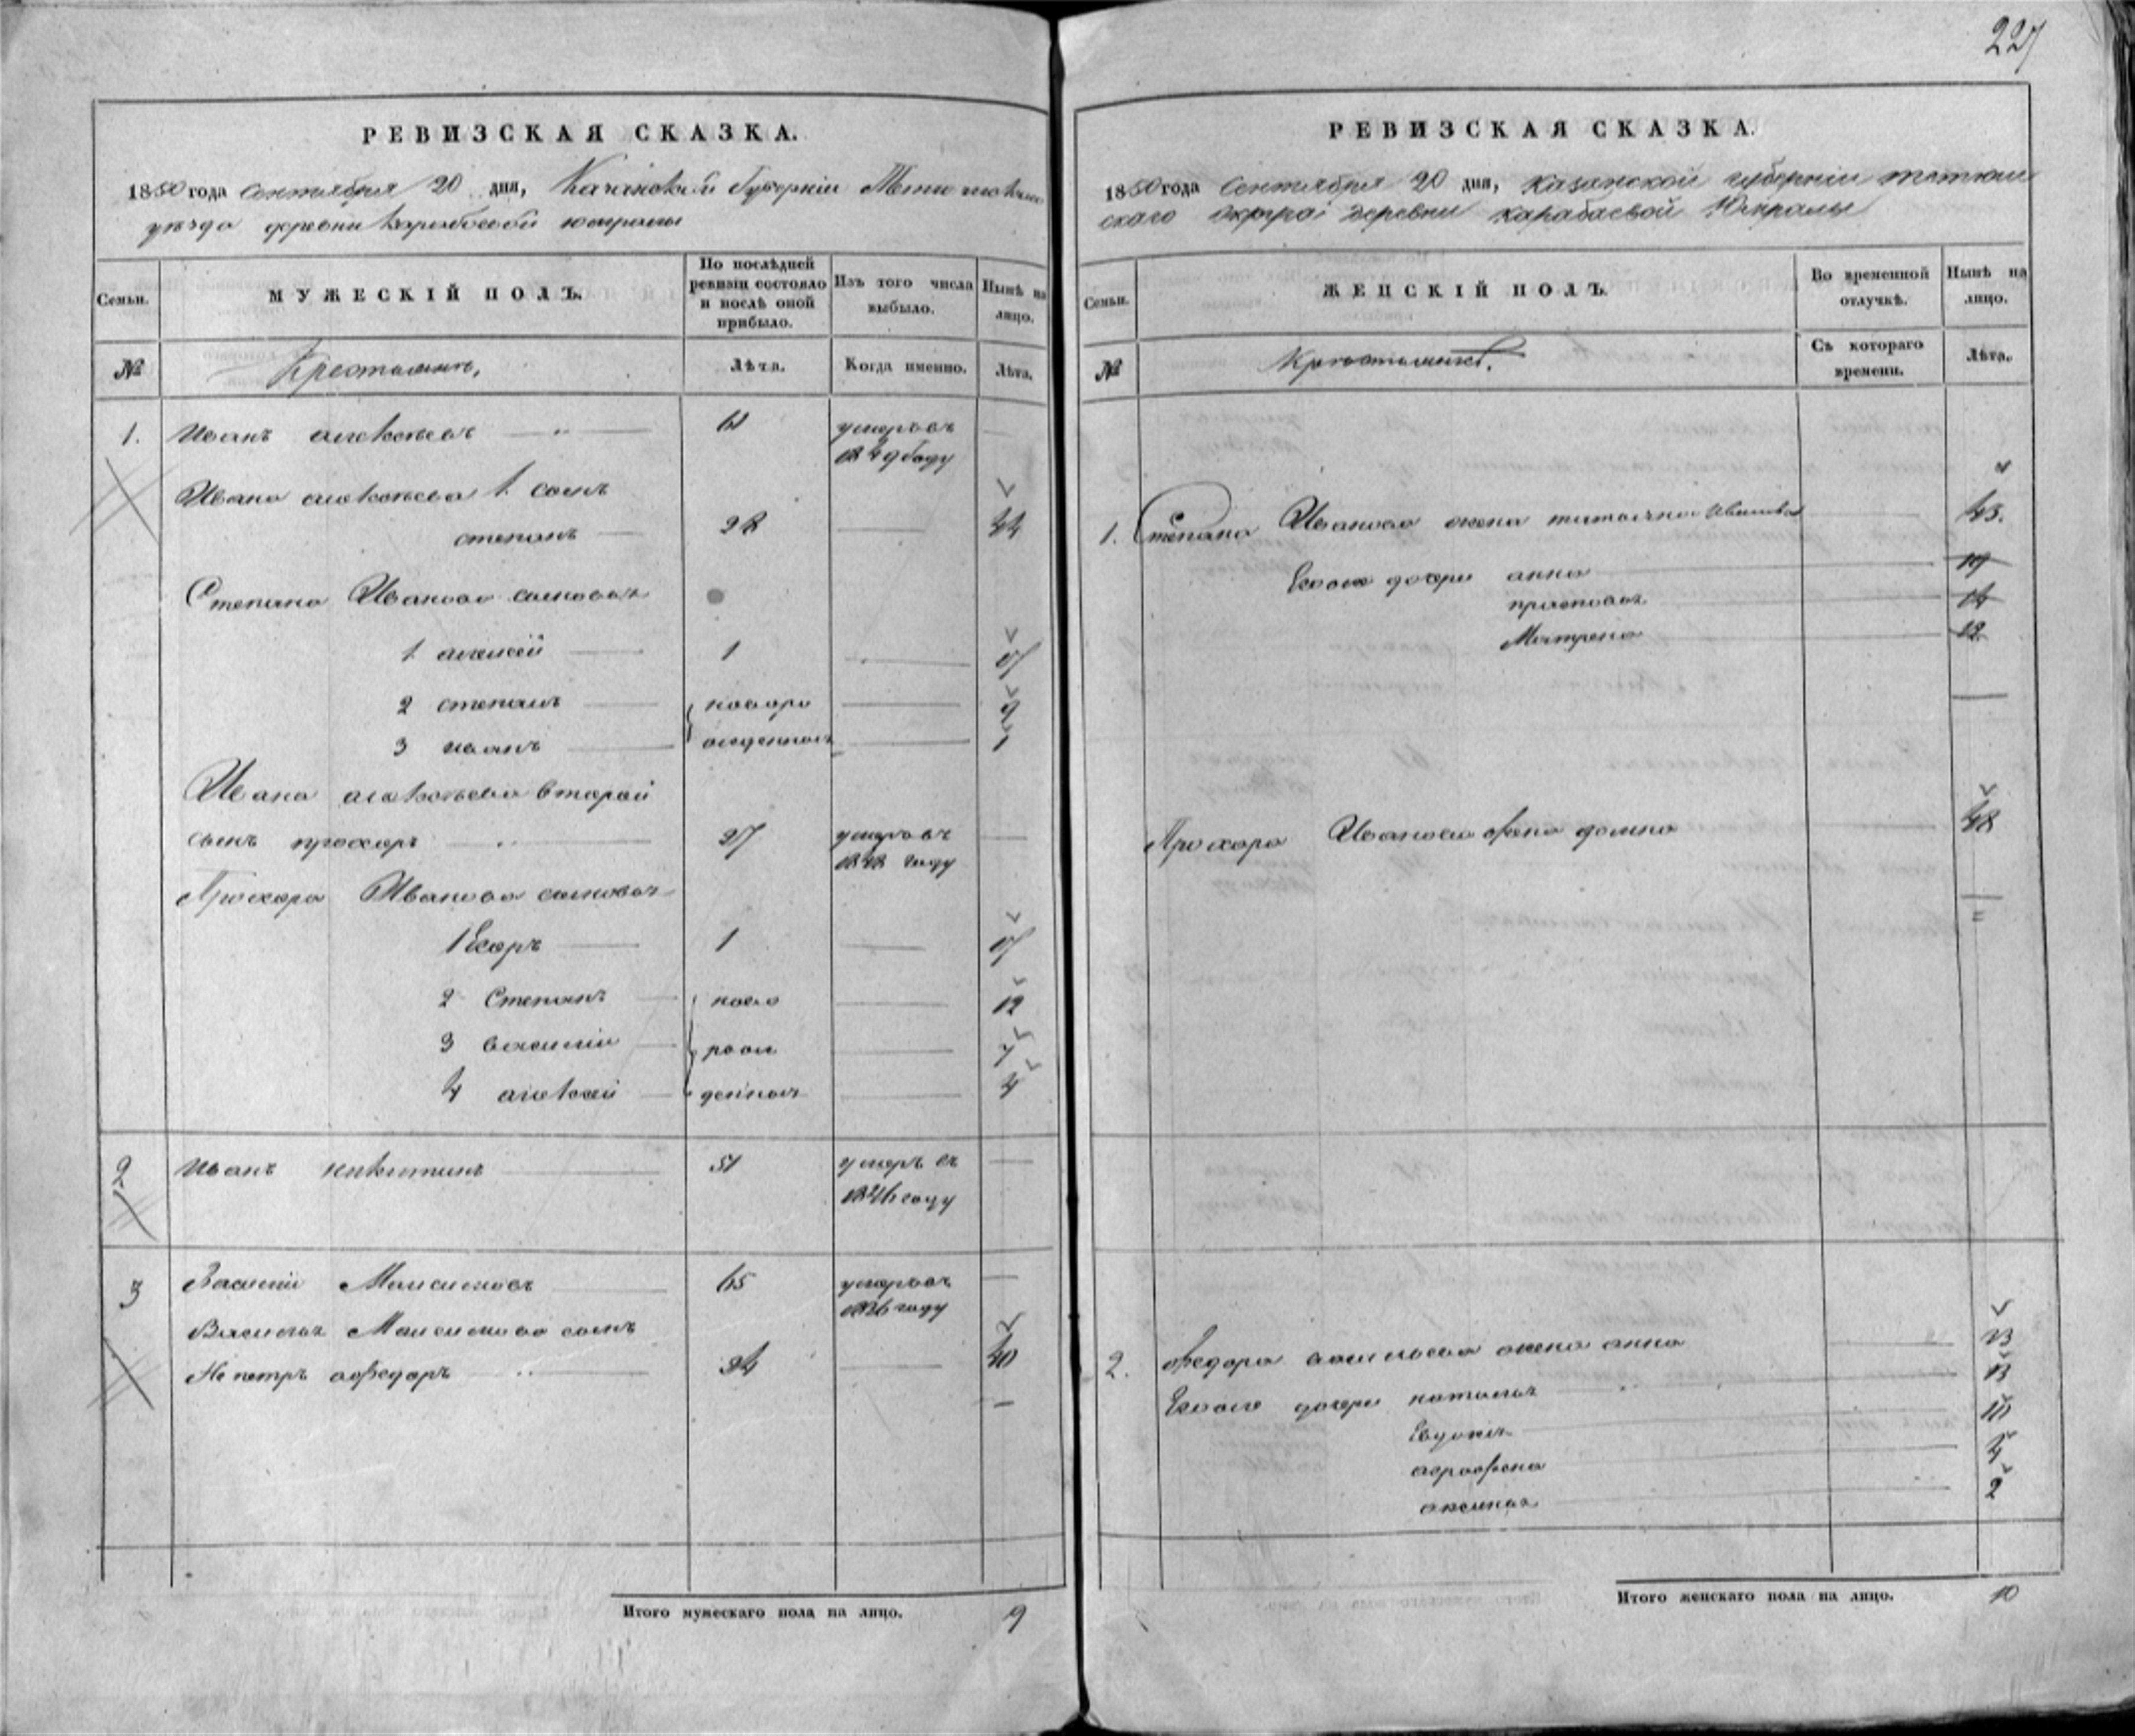 227
РЕВИЗСКАЯ СКАЗКА.
1850 года сентября 20 дня, Казанской губернии
уезда деревни карабаевой
Семьи.
МУЖЕСКІЙ ПОЛЪ.
По послѣдней ревизіи состояло и послѣ оной прибыло.
Изъ того числа выбыло.
Нынѣ на лицо.
№
Лѣта.
Когда именно.
Лѣта.
1. Иванъ алексѣевъ 61 умеръ въ
1849 году
Ивана алексѣева 1. сынъ
степанъ 28 44
Степана Иванова сыновья
1 алексей 1 17
2 степанъ новоро 9
3 иванъ жденныя 1
Ивана алексѣева второй
сынъ прохоръ 27 умеръ въ
1848 году
Прохора Иванова сыновья
1 Егоръ 1 17
2 Степанъ ново 12
3 василий рож 7
4 алексей денныя 4
2 Иванъ никитинъ 51 умеръ въ
1846 году
3 Василий Максимовъ 65 умеръ въ
1836 году
Василья Максимова сынъ
Не петръ а федоръ 24 40
Итого мужескаго пола на лицо. 9
РЕВИЗСКАЯ СКАЗКА.
1850 года сентября 20 дня, казанской губернии тетюш
скаго округа деревни карабаевой
Семьи.
ЖЕНСКІЙ ПОЛЪ.
Во временной отлучкѣ.
Нынѣ на лицо.
№
Съ котораго времени.
Лѣта.
1. Степана Иванова жена татьяна Иванова 43.
Его же дочери анна 19
прасковья 14
Матрена 12
Прохора Иванова жена домна 48
2. федора васильева жена анна 33
Его же дочери наталья 13
Евдокия 10
аграфена 4
аксинья 2
Итого женскаго пола на лицо. 10